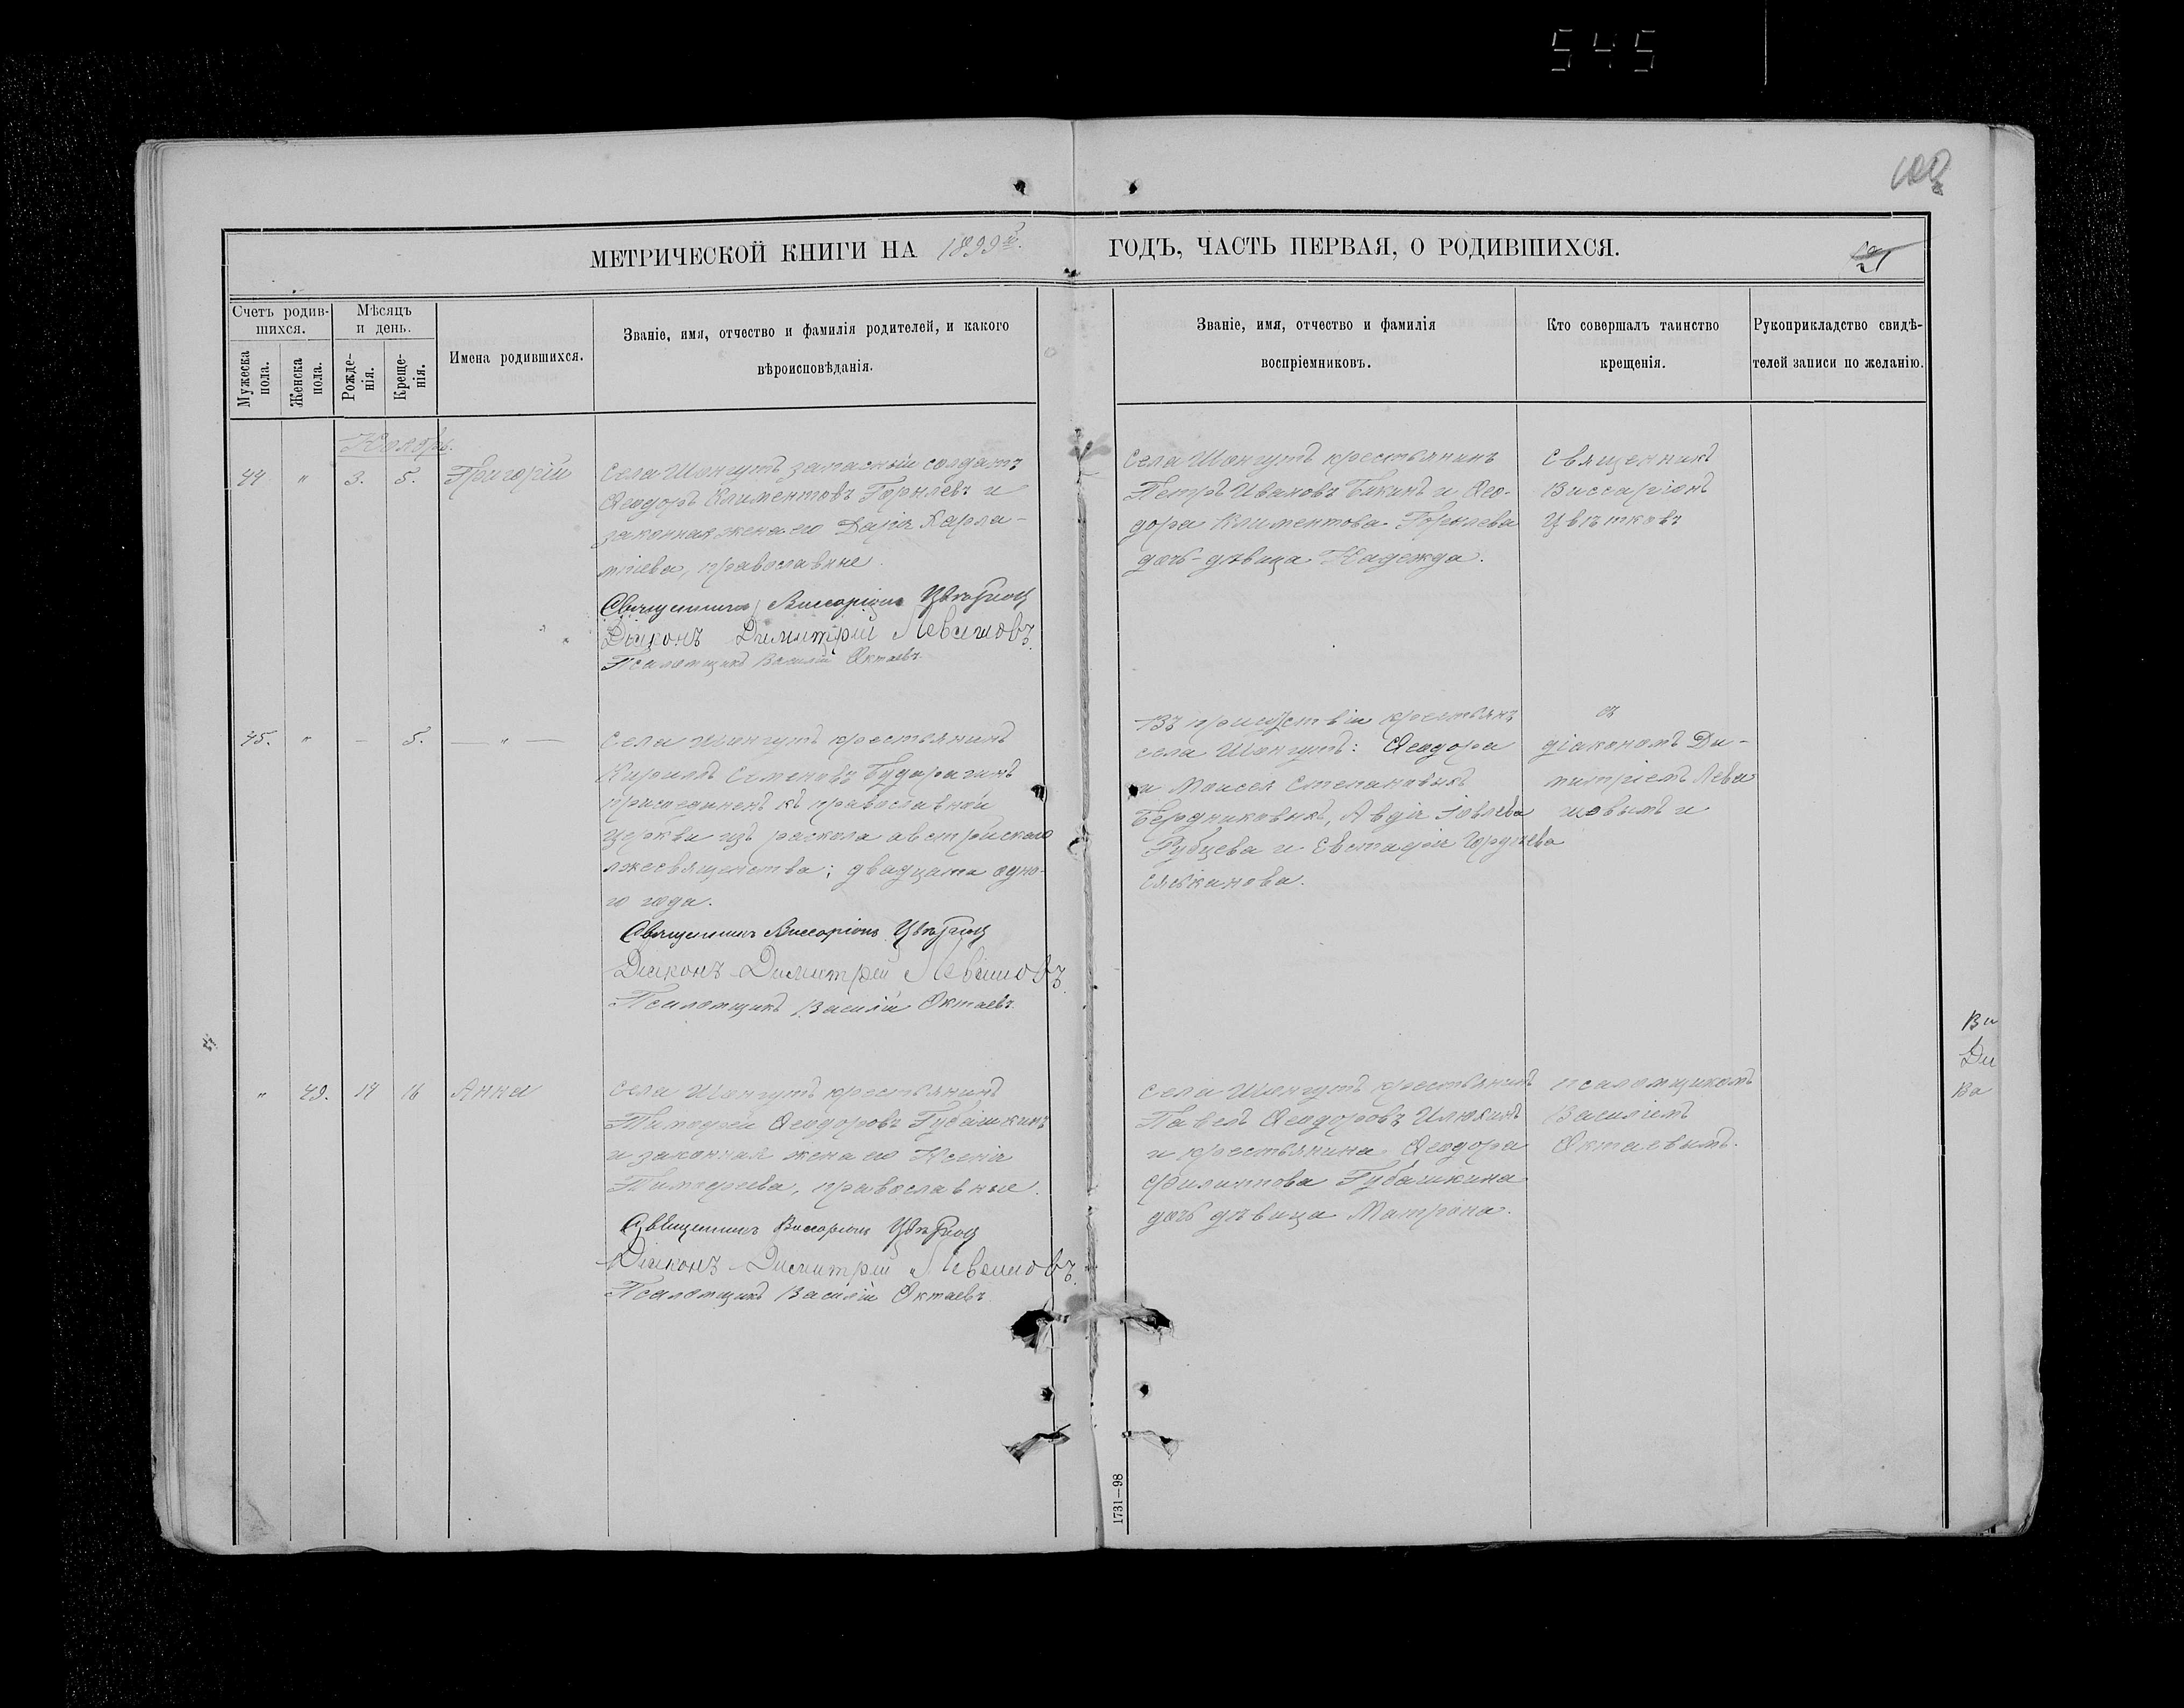 545
МЕТРИЧЕСКОЙ КНИГИ НА 1899 й.
ГОДЪ, ЧАСТЬ ПЕРВАЯ, О РОДИВШИХСЯ.
Счетъ родив-
шихся.
Мужеска
пола.
Женска
пола.
Мѣсяцъ
и день.
Рожде-
нія.
Креще-
нія.
Имена родившихся.
Званіе, имя, отчество и фамилія родителей, и какого
вѣроисповѣданія.
Званіе, имя, отчество и фамилія
воспріемниковъ.
Кто совершалъ таинство
крещенія.
Рукоприкладство свидѣ-
телей записи по желанію.
Ноябрь.
44 " 3. 5. Григорій
Села Шонгутъ запасный солдатъ
Ѳеодоръ Климентовъ Горылевъ и
законная жена его Дарія Харла-
мпіева, православные.
Священникъ Виссаріонъ Цвѣтков
Діаконъ Димитрій Левашовъ.
Псаломщикъ Василій Октаевъ.
Села Шонгутъ крестьянинъ
Петръ Ивановъ Бакинъ и Ѳео-
дора Климентова Горылева
дочь-дѣвица Надежда.
Священникъ
Виссаріонъ
Цвѣтковъ
45. " – 5. — " —
Села Шонгутъ крестьянинъ
Кириллъ Семеновъ Бударагинъ
присоединенъ къ православной
церкви изъ раскола австрійскаго
лжесвященства; двадцати одно-
го года.
Священникъ Виссаріонъ Цвѣтков
Діаконъ Димитрій Левашовъ.
Псаломщикъ Василій Октаевъ.
Въ присутствіи крестьянъ
села Шонгутъ: Ѳеодора
и Моисея Степановыхъ
Бердниковыхъ, Авдія Іовлева
Рубцева и Евстафія Гордѣева
съ
діакономъ Ди-
митріемъ Лева-
шовымъ и
" 49. 14 16 Анна
Села Шонгутъ крестьянинъ
Тимоѳей Ѳеодоровъ Губашкинъ
и законная жена его Ксенія
Тимофеева, православные.
Священникъ Виссаріонъ Цвѣтков
Діаконъ Димитрій Левашовъ.
Псаломщикъ Василій Октаевъ
Села Шонгутъ крестьянинъ
Павелъ Ѳеодоровъ Илюхинъ
и крестьянина Ѳеодора
Филиппова Губашкина
дочь дѣвица Матрона.
псаломщикомъ
Василіемъ
Октаевымъ.
Ви
Ди
Ва
1731—98